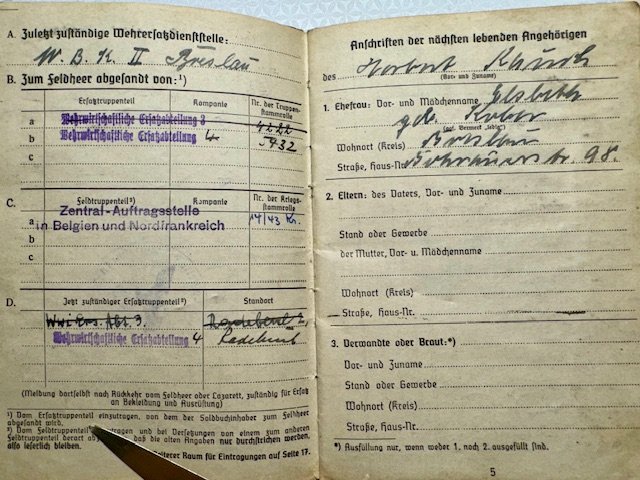 A. Zuletzt zuständige Wehrersatzdienststelle:
W. B. K. II Breslau
B. Zum Feldheer abgesandt von:¹)
Ersatztruppenteil Kompanie Nr. der Truppenstammrolle
a Wehrwirtschaftliche Ersatzabteilung 3 4222
b Wehrwirtschaftliche Ersatzabteilung 4 5432
c
C. Feldtruppenteil²) Kompanie Nr. der Kriegsstammrolle
a Zentral-Auftragsstelle 14/43 Kr.
b in Belgien und Nordfrankreich
c
D. Jetzt zuständiger Ersatztruppenteil²) Standort
Wwi Ers. Abt. 3.
Wehrwirtschaftliche Ersatzabteilung 4
(Meldung dortselbst nach Rückkehr vom Feldheer oder Lazarett, zuständig für Ersatz
an Bekleidung und Ausrüstung)
¹) Vom Ersatztruppenteil einzutragen, von dem der Soldbuchinhaber zum Feldheer
abgesandt wird.
²) Vom Feldtruppenteil und bei Versetzungen von einem zum anderen
Feldtruppenteil derart daß die alten Angaben nur durchstrichen werden,
also leserlich bleiben.
Raum für Eintragungen auf Seite 17.
Anschriften der nächsten lebenden Angehörigen
des Norbert
(Vor- und Zuname)
1. Ehefrau: Vor- und Mädchenname Elsbeth
geb. Kober
(ggf. Vermerk „ledig")
Wohnort (Kreis) Breslau
Straße, Haus-Nr. 98.
2. Eltern: des Vaters, Vor- und Zuname
Stand oder Gewerbe
der Mutter, Vor- u. Mädchenname
Wohnort (Kreis)
Straße, Haus-Nr.
3. Verwandte oder Braut:*)
Vor- und Zuname
Stand oder Gewerbe
Wohnort (Kreis)
Straße, Haus-Nr.
*) Ausfüllung nur, wenn weder 1. noch 2. ausgefüllt sind.
5